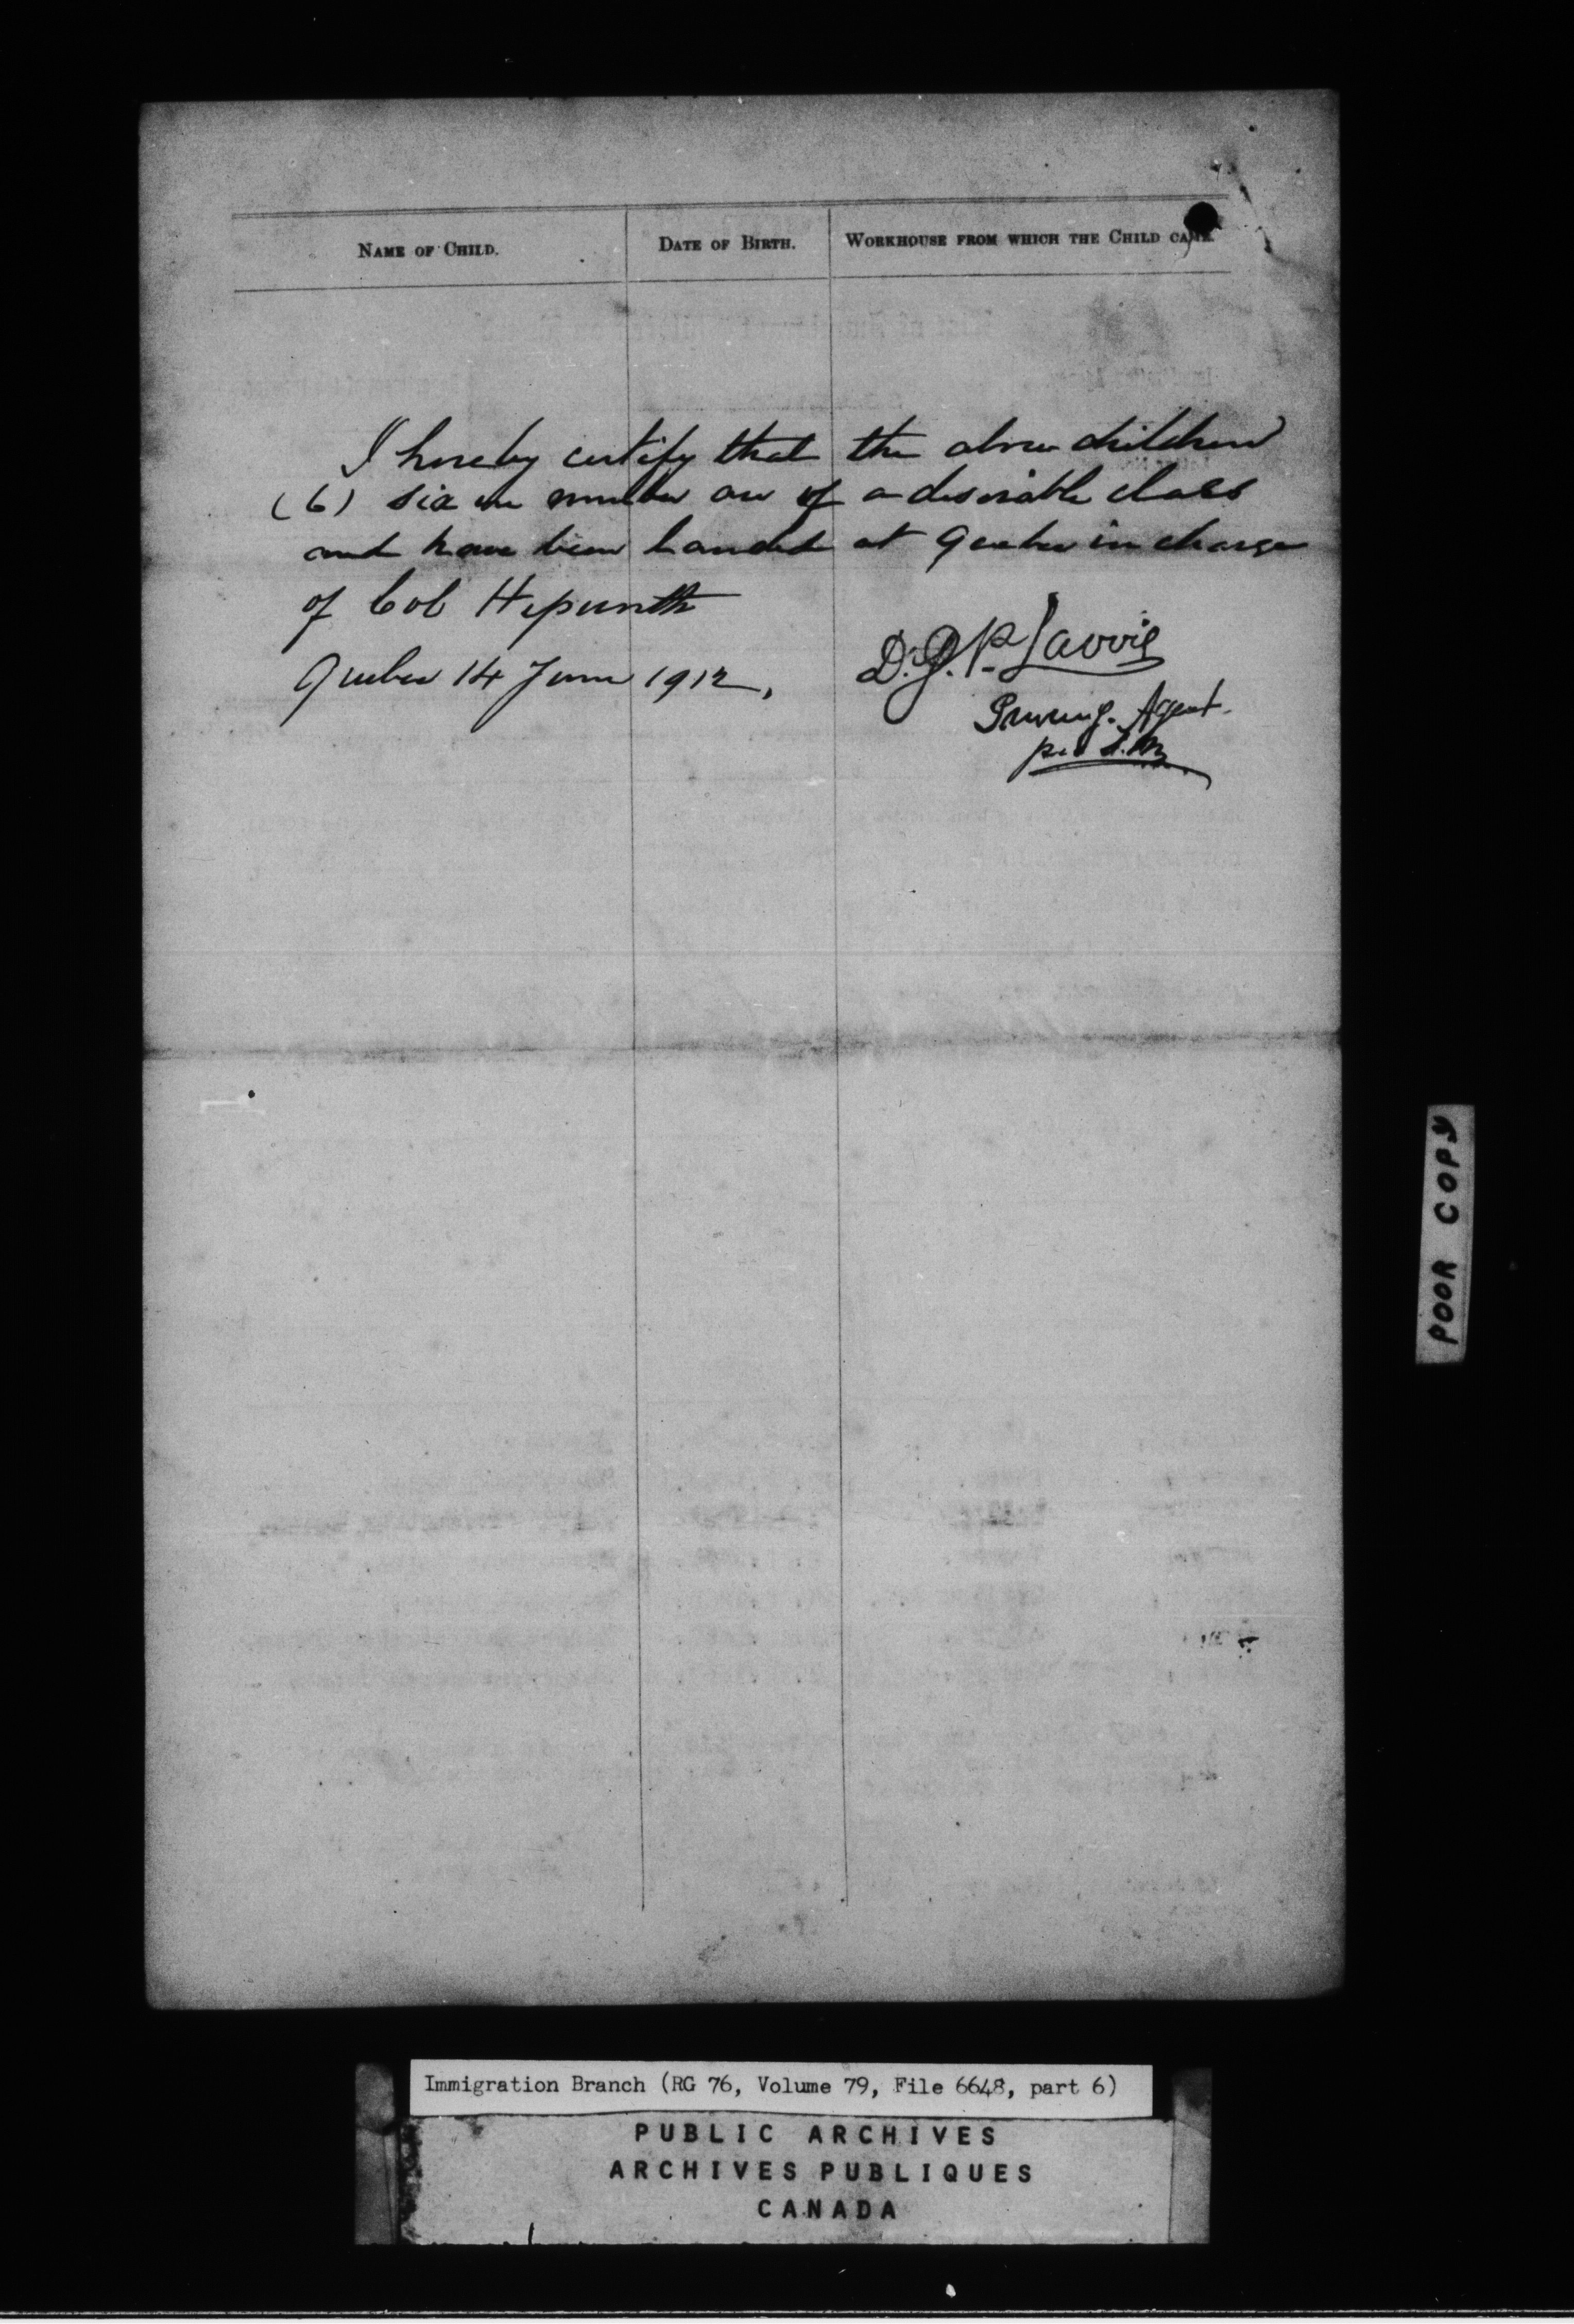 NAME OF CHILD. DATE OF BIRTH. WORKHOUSE FROM WHICH THE CHILD CAME.
I hereby certify that the above children
(6) six in number are of a desirable class
and have been landed at Quebec in charge
of Col
Quebec 14 June 1912,
Immig. Agent.
per
POOR COPY
Immigration Branch (RG 76, Volume 79, File 6648, part 6)
PUBLIC ARCHIVES
ARCHIVES PUBLIQUES
CANADA